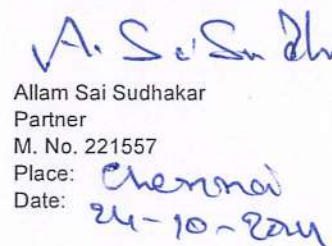 A. Sai Sudh
Allam Sai Sudhakar
Partner
M. No. 221557
Place: Chennai
Date: 24-10-2024